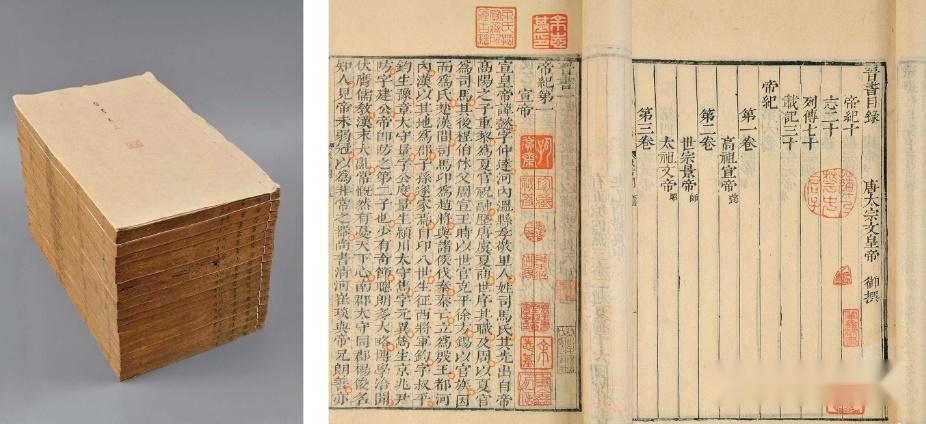 晉書目錄 唐太宗文皇帝 御撰
帝紀十
志二十
列傳七十
載記三十
帝紀
第一卷
高祖宣帝懿
第二卷
世宗景帝師
太祖文帝昭
第三卷
晉書一
帝紀第一
宣帝
宣皇帝諱懿字仲達河内溫縣孝敬里人姓司馬氏其先出自帝
高陽之子重黎爲夏官祝融歷唐虞夏商世序其職及周以夏官
爲司馬其後程伯休父周宣王時以世官克平徐方錫以官族因
而爲氏楚漢間司馬卬爲趙將與諸侯伐秦秦亡立爲殷王都河
内漢以其地爲郡子孫遂家焉自卬八世生征西將軍鈞字叔平
鈞生豫章太守量字公度量生潁川太守儁字元異儁生京兆尹
防字建公帝卽防之第二子也少有奇節聰朗多大略博學洽聞
伏膺儒敎漢末大亂常慨然有憂天下心南郡太守同郡楊俊名
知人見帝未弱冠以爲非常之器尚書清河崔琰與帝兄朗善亦